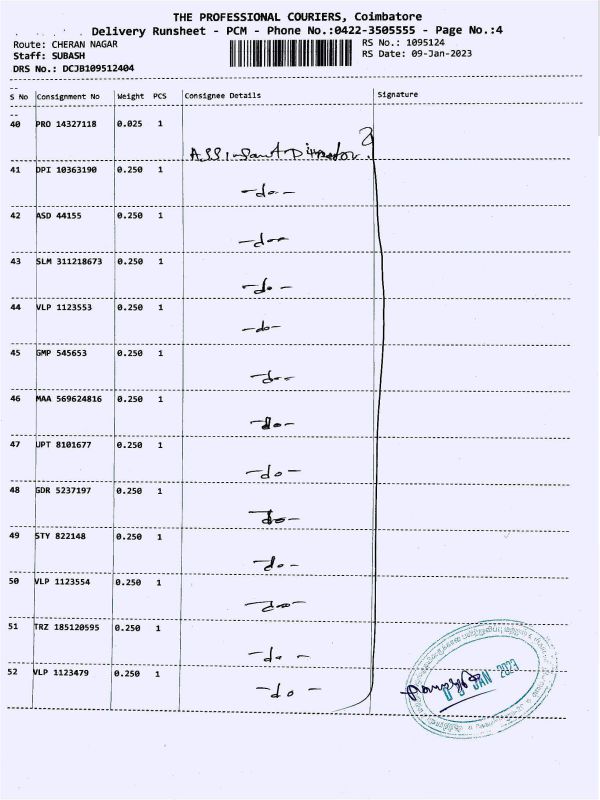 THE PROFESSIONAL COURIERS, Coimbatore
Delivery Runsheet - PCM - Phone No.:0422-3505555 - Page No.:4
Route: CHERAN NAGAR
Staff: SUBASH
DRS No.: DCJB109512404
RS No.: 1095124
RS Date: 09-Jan-2023
S No Consignment No Weight PCS Consignee Details Signature
40 PRO 14327118 0.025 1
41 DPI 10363190 0.250 1
-do-
42 ASD 44155 0.250 1
-do-
43 SLM 311218673 0.250 1
-do-
44 VLP 1123553 0.250 1
-do-
45 GMP 545653 0.250 1
-do-
46 MAA 569624816 0.250 1
-do-
47 UPT 8101677 0.250 1
-do-
48 GDR 5237197 0.250 1
-do-
49 STY 822148 0.250 1
-do-
50 VLP 1123554 0.250 1
-do-
51 TRZ 185120595 0.250 1
-do-
52 VLP 1123479 0.250 1
-do-
JAN 2023